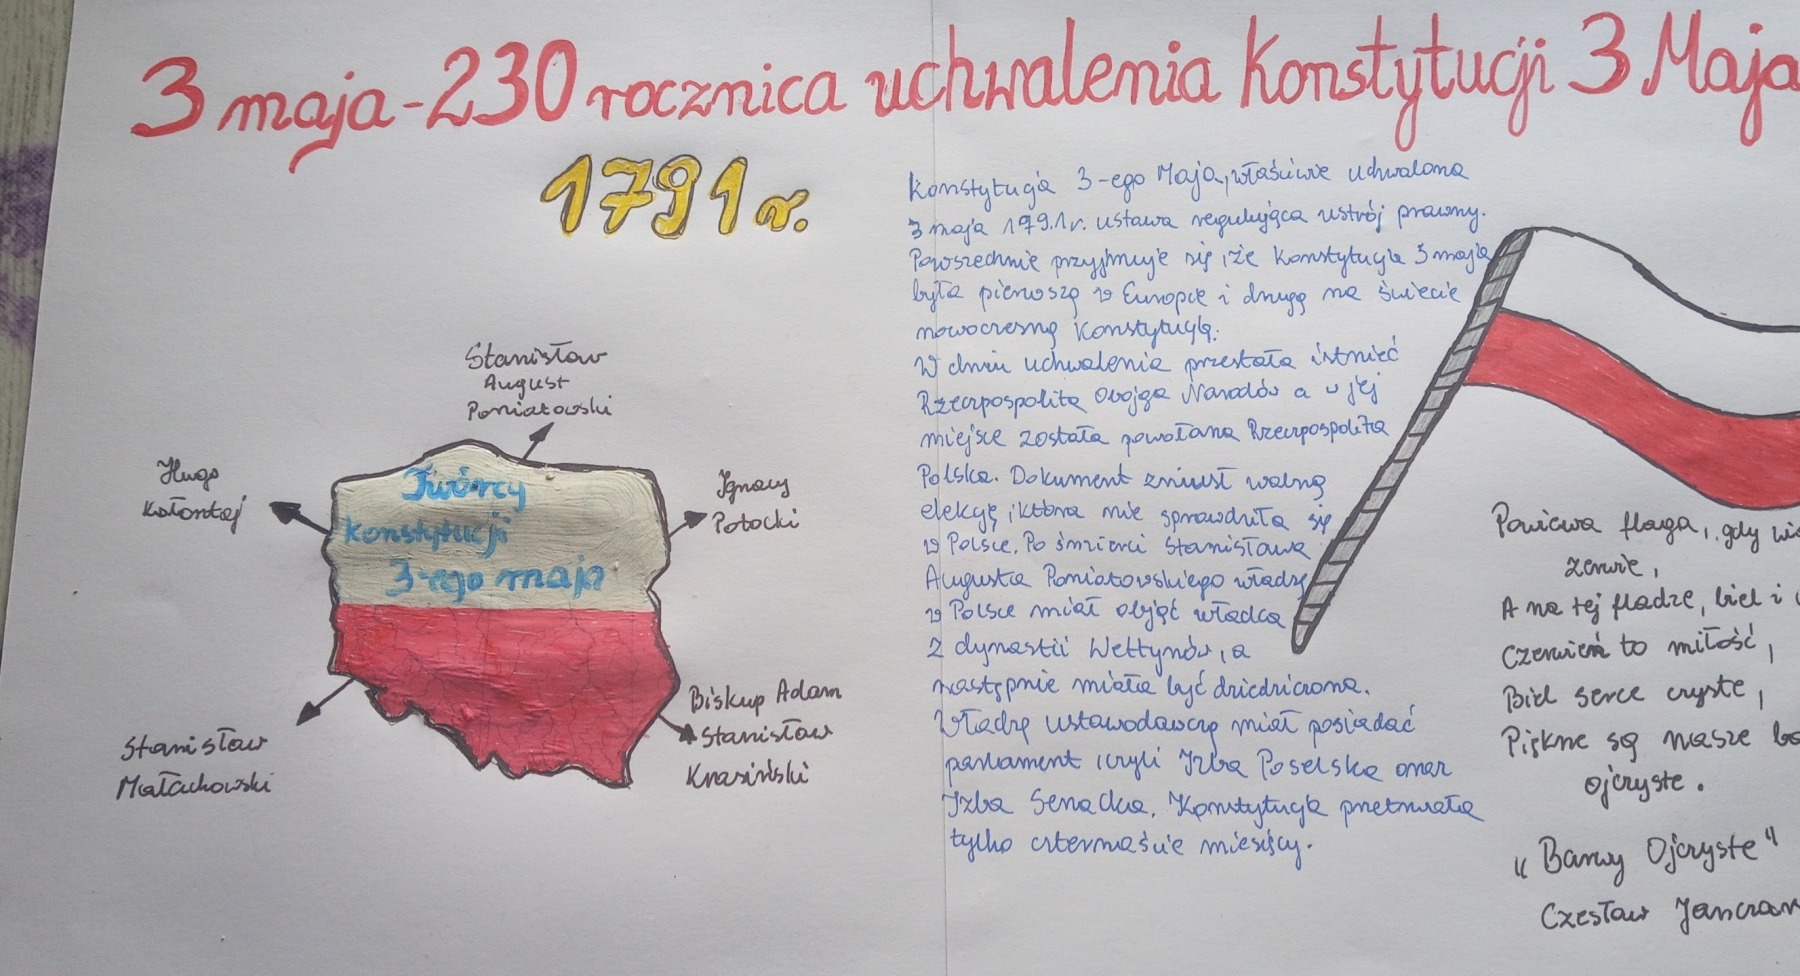 3 maja - 230 rocznica uchwalenia Konstytucji 3 Maja
1791 r.
Stanisław
August
Poniatowski
Hugo
Kołontaj
Ignacy
Potocki
Twórcy
konstytucji
3-ego maja
Stanisław
Małachowski
Biskup Adam
Stanisław
Krasiński
Konstytucja 3-ego Maja, właściwie uchwalona
3 maja 1791r. ustawa regulująca ustrój prawny.
Powszechnie przyjmuje się, że Konstytucja 3 maja
była pierwszą w Europie i drugą na świecie
nowoczesną konstytucją.
W dniu uchwalenia przestała istnieć
Rzeczpospolita Obojga Narodów a w jej
miejsce została powołana Rzeczpospolita
Polska. Dokument zniósł wolną
elekcję, która nie sprawdziła się
w Polsce. Po śmierci Stanisława
Augusta Poniatowskiego władzę
w Polsce miał objąć władca
z dynastii Wettynów, a
następnie miała być dziedziczona.
Władzę ustawodawczą miał posiadać
parlament, czyli Izba Poselska oraz
Izba Senacka. Konstytucja przetrwała
tylko czternaście miesięcy.
Powiewa flaga, gdy
zerwie,
A na tej fladze, biel i
Czerwień to miłość,
Biel serce czyste,
Piękne są nasze
ojczyste.
"Barwy Ojczyste"
Czesław